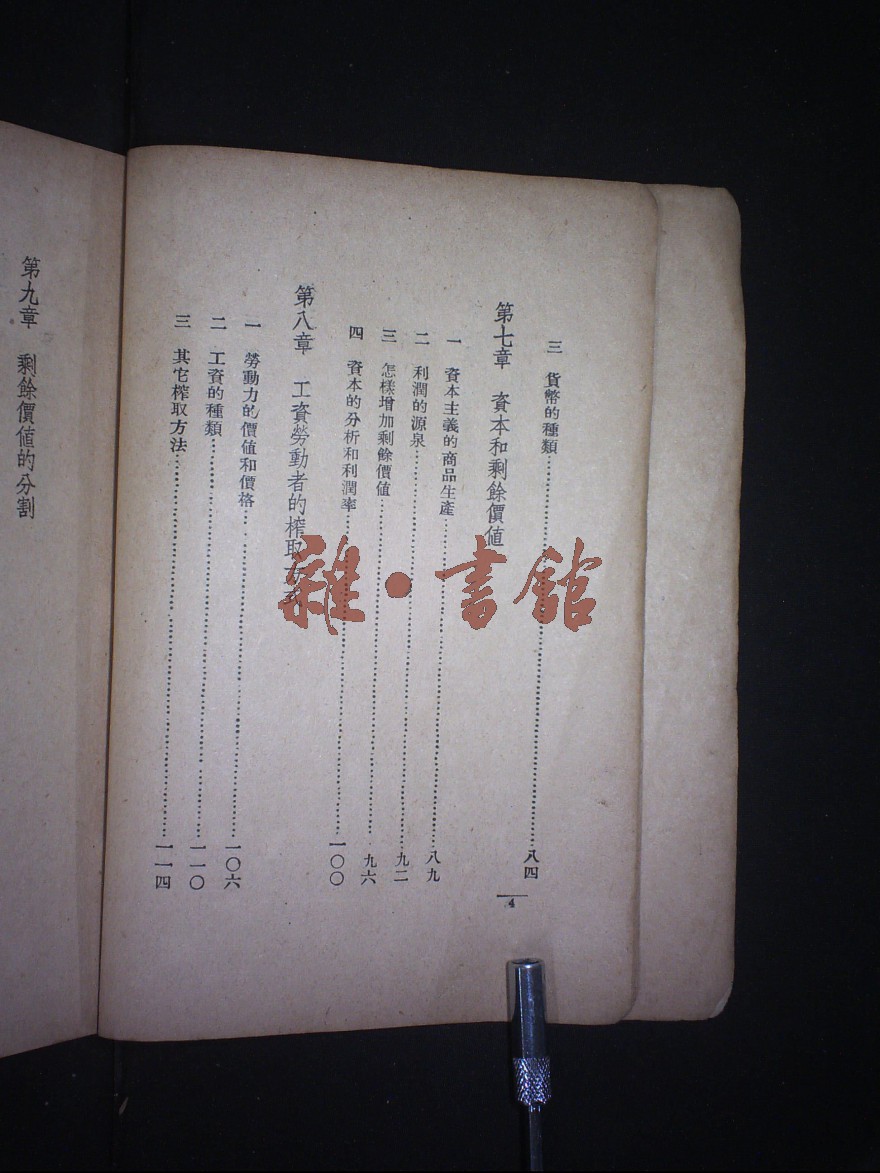 三　貨幣的種類……八四
第七章　資本和剩餘價値
一　資本主義的商品生產……八九
二　利潤的源泉……九二
三　怎樣增加剩餘價値……九六
四　資本的分析和利潤率……一〇〇
第八章　工資勞動者的榨取方式
一　勞動力的價値和價格……一〇六
二　工資的種類……一一〇
三　其它榨取方法……一一四
4
第九章　剩餘價値的分割
雜·書館